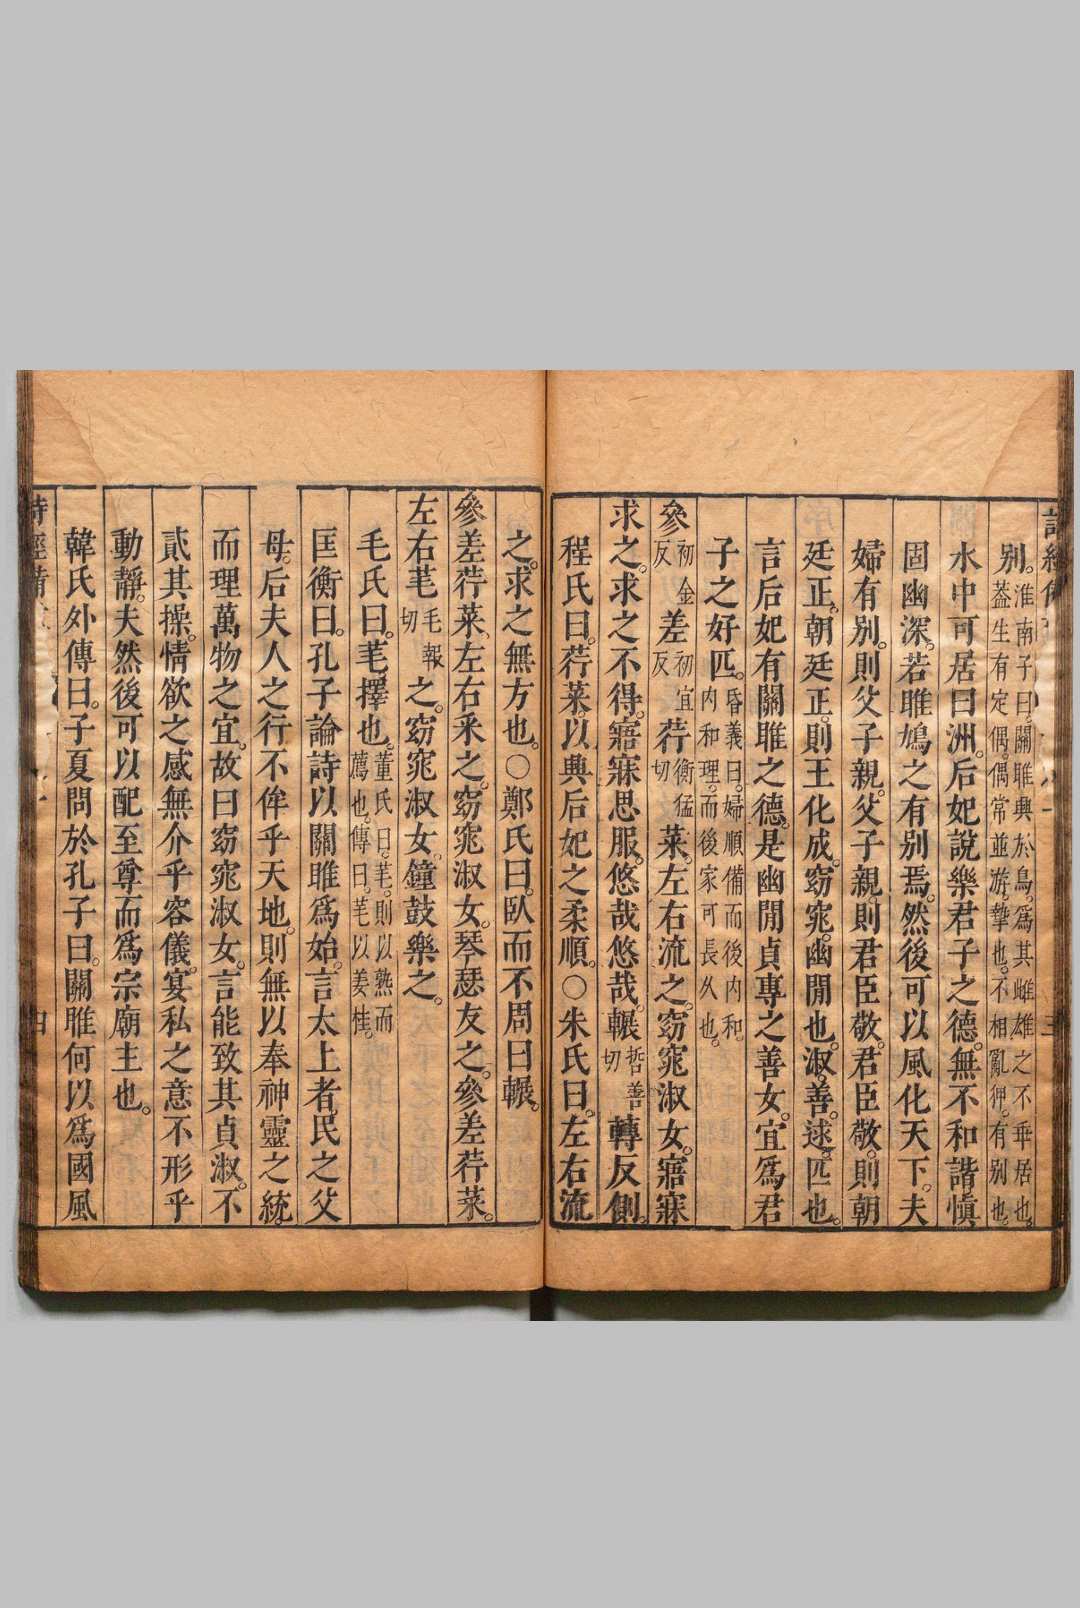 詩經
別。淮南子曰。關雎興於鳥。爲其雌雄之不乖居也。
蓋生有定偶。偶常並游。摯也。不相亂狎。有別也。
水中可居曰洲。后妃說樂君子之德。無不和諧愼
固幽深。若雎鳩之有別焉。然後可以風化天下。夫
婦有別。則父子親。父子親。則君臣敬。君臣敬。則朝
廷正。朝廷正。則王化成。窈窕。幽閒也。淑。善。逑。匹也。
言后妃有關雎之德。是幽閒貞專之善女。宜爲君
子之好匹。昏義曰。婦順備而後內和。
內和理。而後家可長久也。
參初金反差初宜反荇衡猛切菜。左右流之。窈窕淑女。寤寐
求之。求之不得。寤寐思服。悠哉悠哉。輾哲善切轉反側。
程氏曰。荇菜。以興后妃之柔順。〇朱氏曰。左右流
之。求之無方也。〇鄭氏曰。臥而不周曰輾。
參差荇菜、左右采之。窈窕淑女。琴瑟友之。參差荇菜。
左右芼毛報切之。窈窕淑女。鐘鼓樂之。
毛氏曰。芼。擇也。董氏曰。芼。則以熟而
薦也。傳曰。芼以姜桂。
匡衡曰。孔子論詩以關雎爲始。言太上者。民之父
母。后夫人之行不侔乎天地。則無以奉神靈之統。
而理萬物之宜。故曰窈窕淑女。言能致其貞淑。不
貳其操。情欲之感無介乎容儀。宴私之意不形乎
動靜。夫然後可以配至尊而爲宗廟主也。
韓氏外傳曰。子夏問於孔子曰。關雎何以爲國風
詩經備